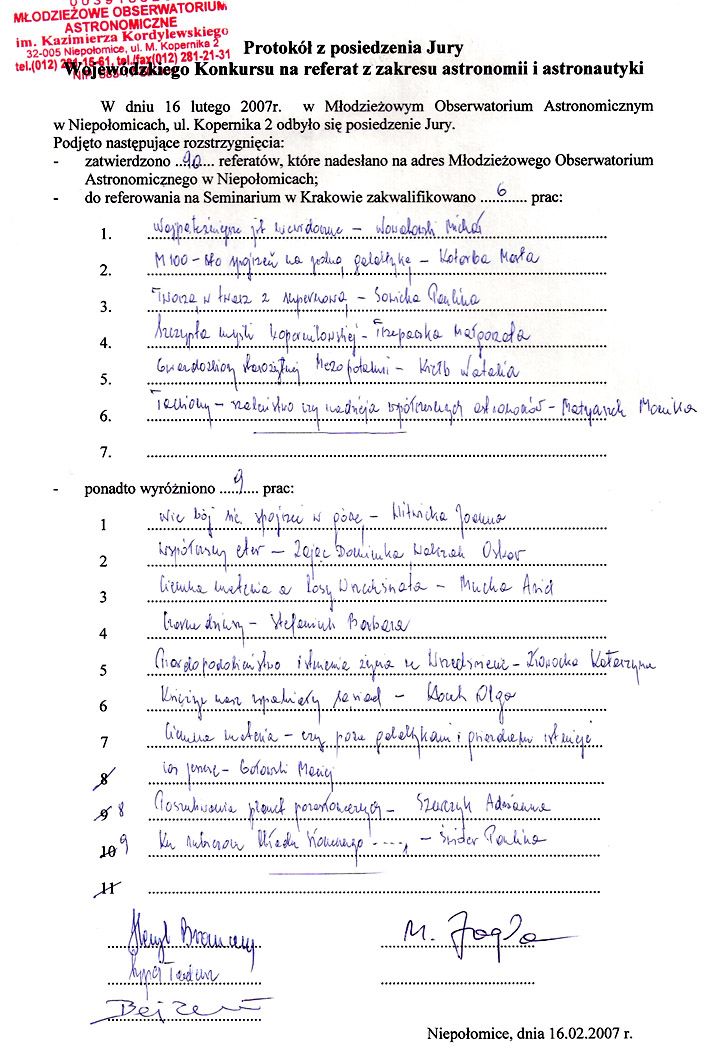 MŁODZIEŻOWE OBSERWATORIUM
ASTRONOMICZNE
im. Kazimierza Kordylewskiego
32-005 Niepołomice, ul. M. Kopernika 2
tel.(012) 281-15-61, tel./fax(012) 281-21-31
Protokół z posiedzenia Jury
Wojewódzkiego Konkursu na referat z zakresu astronomii i astronautyki
W dniu 16 lutego 2007r. w Młodzieżowym Obserwatorium Astronomicznym
w Niepołomicach, ul. Kopernika 2 odbyło się posiedzenie Jury.
Podjęto następujące rozstrzygnięcia:
- zatwierdzono ..90... referatów, które nadesłano na adres Młodzieżowego Obserwatorium
Astronomicznego w Niepołomicach;
- do referowania na Seminarium w Krakowie zakwalifikowano ....6.... prac:
1. jest niewidoczne – Nowakowski Michał
2. M100 – sto spojrzeń na jedną galaktykę – Kotarba Marta
3. Twarzą w twarz z supernową – Sowicka Paulina
4. Szczypta myśli kopernikowskiej – Trzepaczka Małgorzata
5. Gwiazdozbiory starożytnej Mezopotamii – Kiełb Natalia
6. Tachiony – szaleństwo czy nadzieja współczesnych astronomów – Matyasek Monika
7.
- ponadto wyróżniono ....9.... prac:
1 Nie bój się, spójrz w górę – Witwicka Joanna
2 Współczesny eter – Zając Dominika, Walczak Oskar
3 Ciemna materia a losy Wszechświata – Mucha Arid
4 Czarne dziury – Stefaniuk Barbara
5 Prawdopodobieństwo istnienia życia we Wszechświecie – Katarzyna
6 Księżyc nasz wspaniały sąsiad – Kocuń Olga
7 Ciemna materia – czy poza galaktykami i gwiazdami istnieje
8 coś jeszcze – Gołowski Maciej
9 8 Poszukiwania planet pozasłonecznych – Szewczyk Adrianna
10 9 Ku rubieżom Układu Słonecznego ...., – Świder Paulina
11
M. Jagła
Niepołomice, dnia 16.02.2007 r.